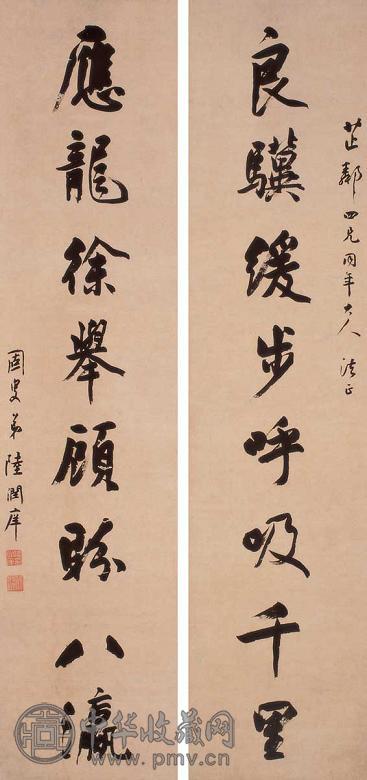 芷鄰四兄同年大人法正
良驥緩步呼吸千里
應龍徐舉顧盼八瀛
弟陸潤庠
中华收藏网
www.pmv.cn